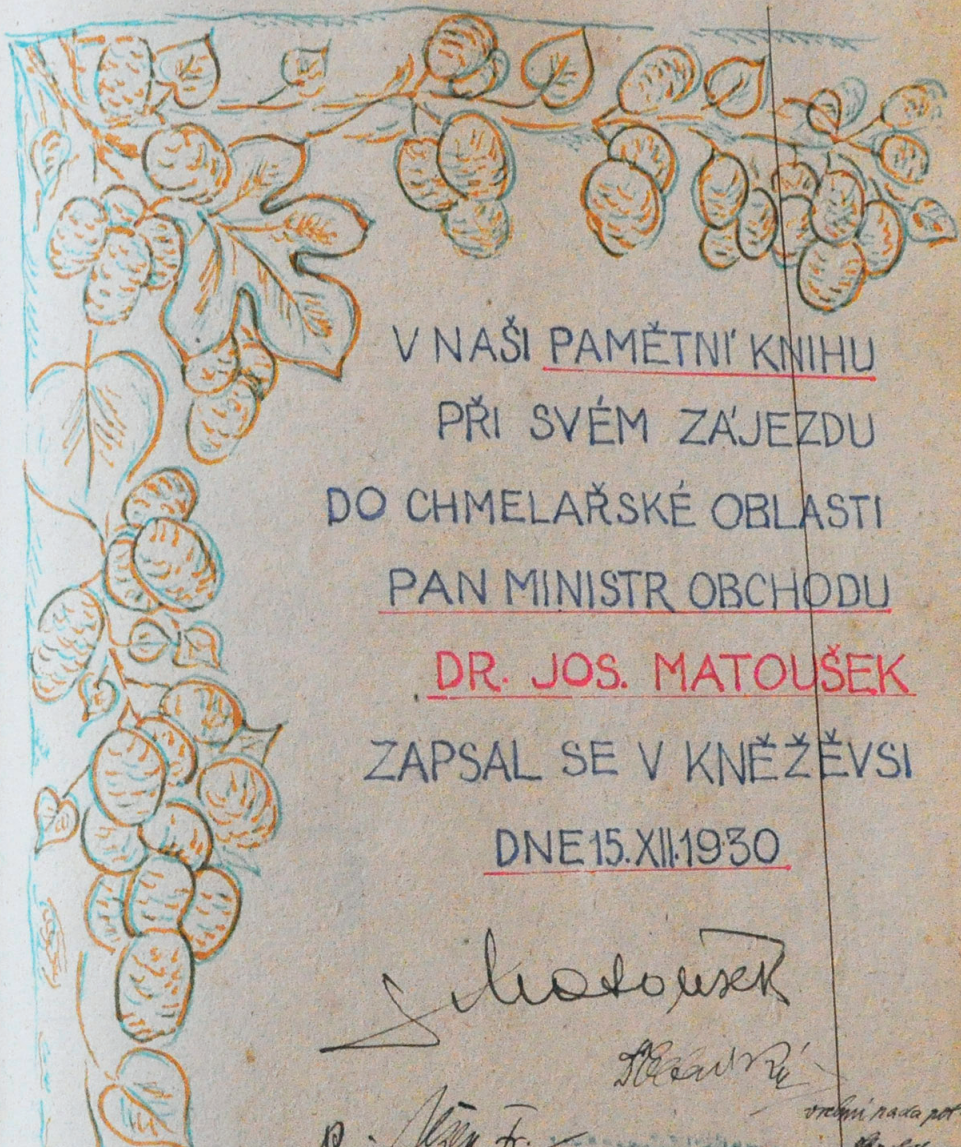 V NAŠI PAMĚTNÍ KNIHU
PŘI SVÉM ZÁJEZDU
DO CHMELAŘSKÉ OBLASTI
PAN MINISTR OBCHODU
DR. JOS. MATOUŠEK
ZAPSAL SE V KNĚŽĚVSI
DNE 15.XII.1930
Matoušek